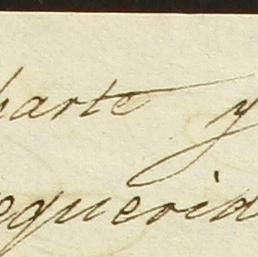 parte y
equerid